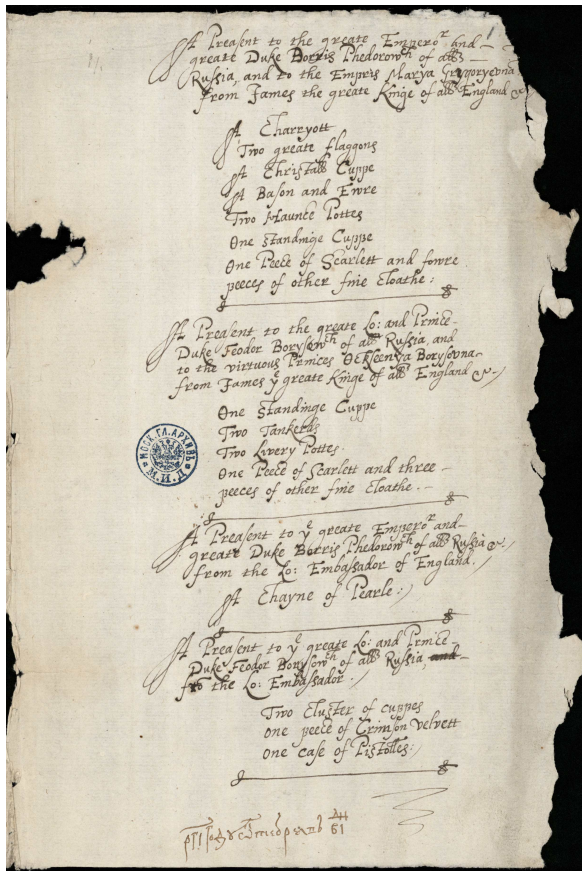 A Preasent to the greate Emperor and
greate Duke Borris Phedorowh of alls
Russia, and to the Empris Marya Gregoryevna
from James the greate Kinge of all England &
A Charryott
Two greate flaggons
A Christall Cuppe
A Bason and Ewre
Two Maunce Pottes
One standinge Cuppe
One Peece of Scarlett and fowre
peeces of other fine Cloathe:
A Preasent to the greate Lo: and Prince
Duke Feodor Borysowh of all Russia, and
to the virtuous Princes Oksenya Borysovna
from James ye greate Kinge of all England &
One Standinge Cuppe
Two Tankerds
Two Livery Pottes
One Peece of Scarlett and three
peeces of other fine Cloathe.
МОСК.ГЛ.АРХИВЪ М.И.Д.
A Preasent to ye greate Emperor and
greate Duke Borris Phedorowh of all Russia
from the Lo: Embassador of England,
A Chayne of Pearle:
A Preasent to ye greate Lo: and Prince
Duke Feodor Borysowh of all Russia and
fro the Lo: Embassador.
Two Cluster of cuppes
One peece of Crimson Velvett
One case of Pistolles:
61